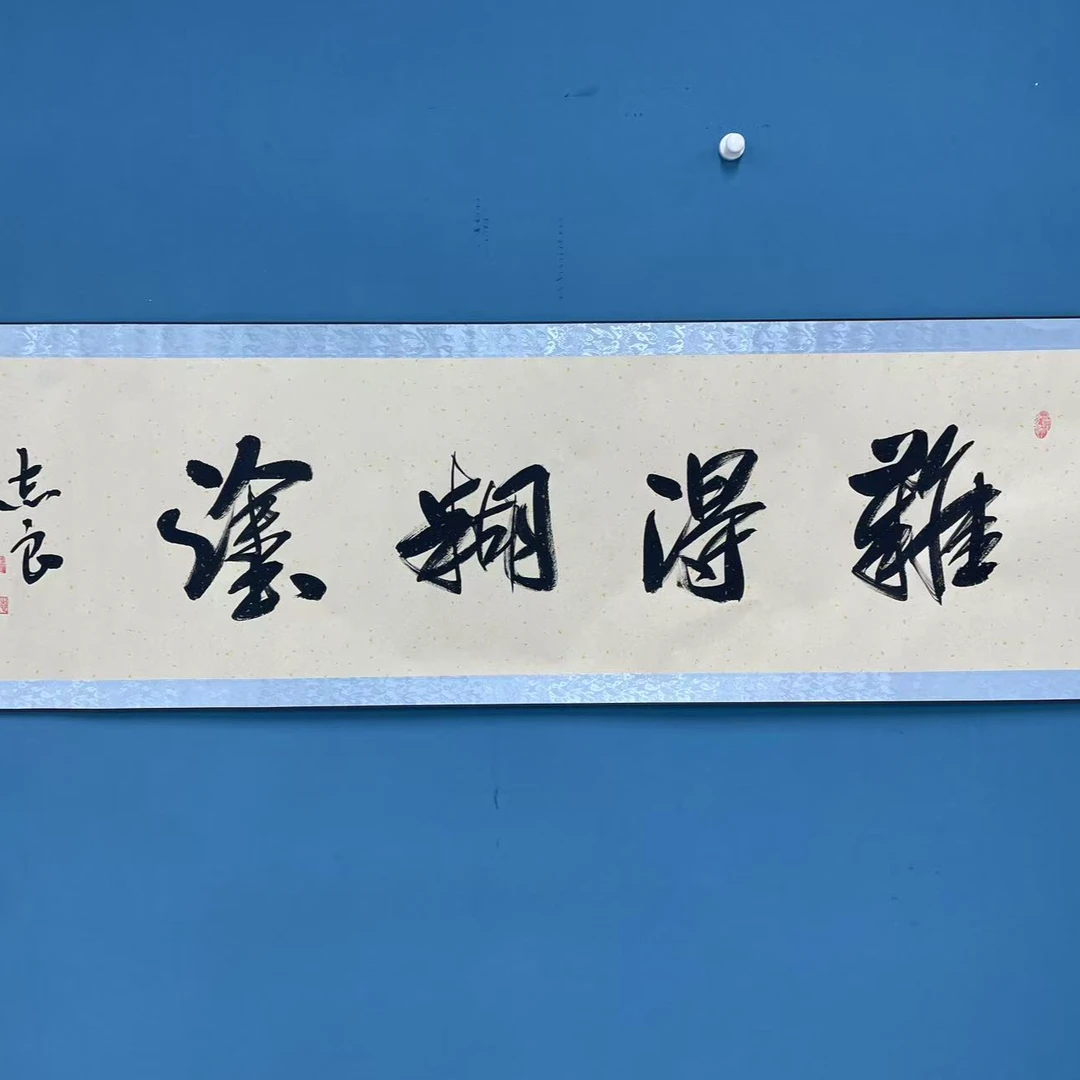 難得糊塗
志良